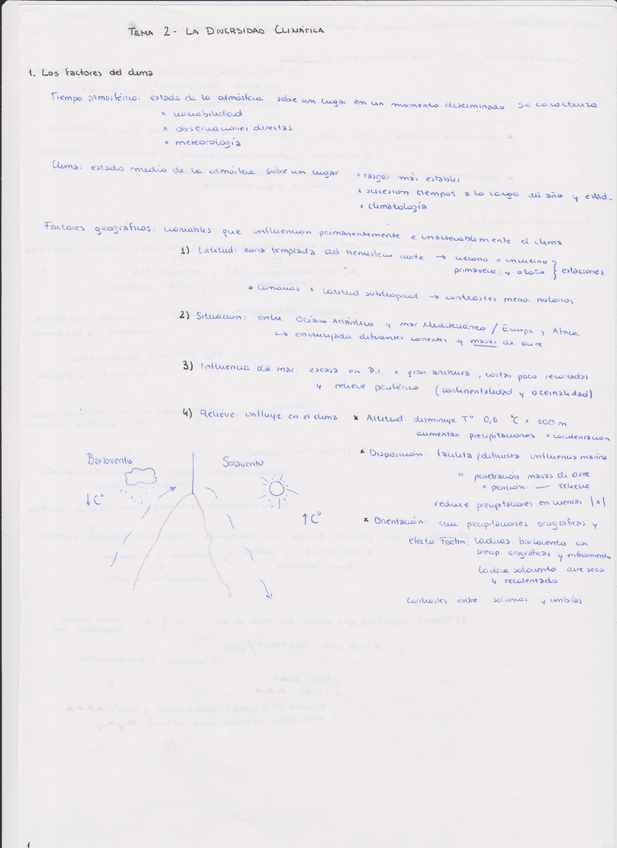 TEMA 2 - LA DIVERSIDAD CLIMÁTICA
1. Los factores del clima
Tiempo atmosférico: estado de la atmósfera sobre un lugar en un momento determinado. Se caracteriza
* variabilidad
* observaciones directas
* meteorología
Clima: estado medio de la atmósfera sobre un lugar * rasgos más estables
* sucesión tiempos a lo largo del año y estad.
* climatología
Factores geográficos: variables que influencian permanentemente e inalterablemente el clima
1) Latitud: zona templada del hemisferio norte → verano e invierno
primavera y otoño } estaciones
* Canarias * latitud subtropical → contrastes menos notorios
2) Situación: entre Océano Atlántico y mar Mediterráneo / Europa y África
↳ encrucijada diferentes corrientes y masas de aire
3) Influencia del mar: escasa en P.I. * gran anchura, costas poco recortadas
y relieve periférico (continentalidad y oceanidad)
4) Relieve: influye en el clima * Altitud: disminuye Tª 0,6 °C * 100 m
aumentan precipitaciones * condensación
* Disposición: facilita / dificulta influencia marina
" penetración masas de aire
relieve
reduce precipitaciones en cuencas
* Orientación: crea precipitaciones orográficas y
efecto Foëhn: laderas barlovento con
precip. orográficas y enfriamiento
ladera sotavento aire seco
y recalentado
Contrastes entre solanas y umbrías
Barlovento
Sotavento
↓ C°
↑ C°